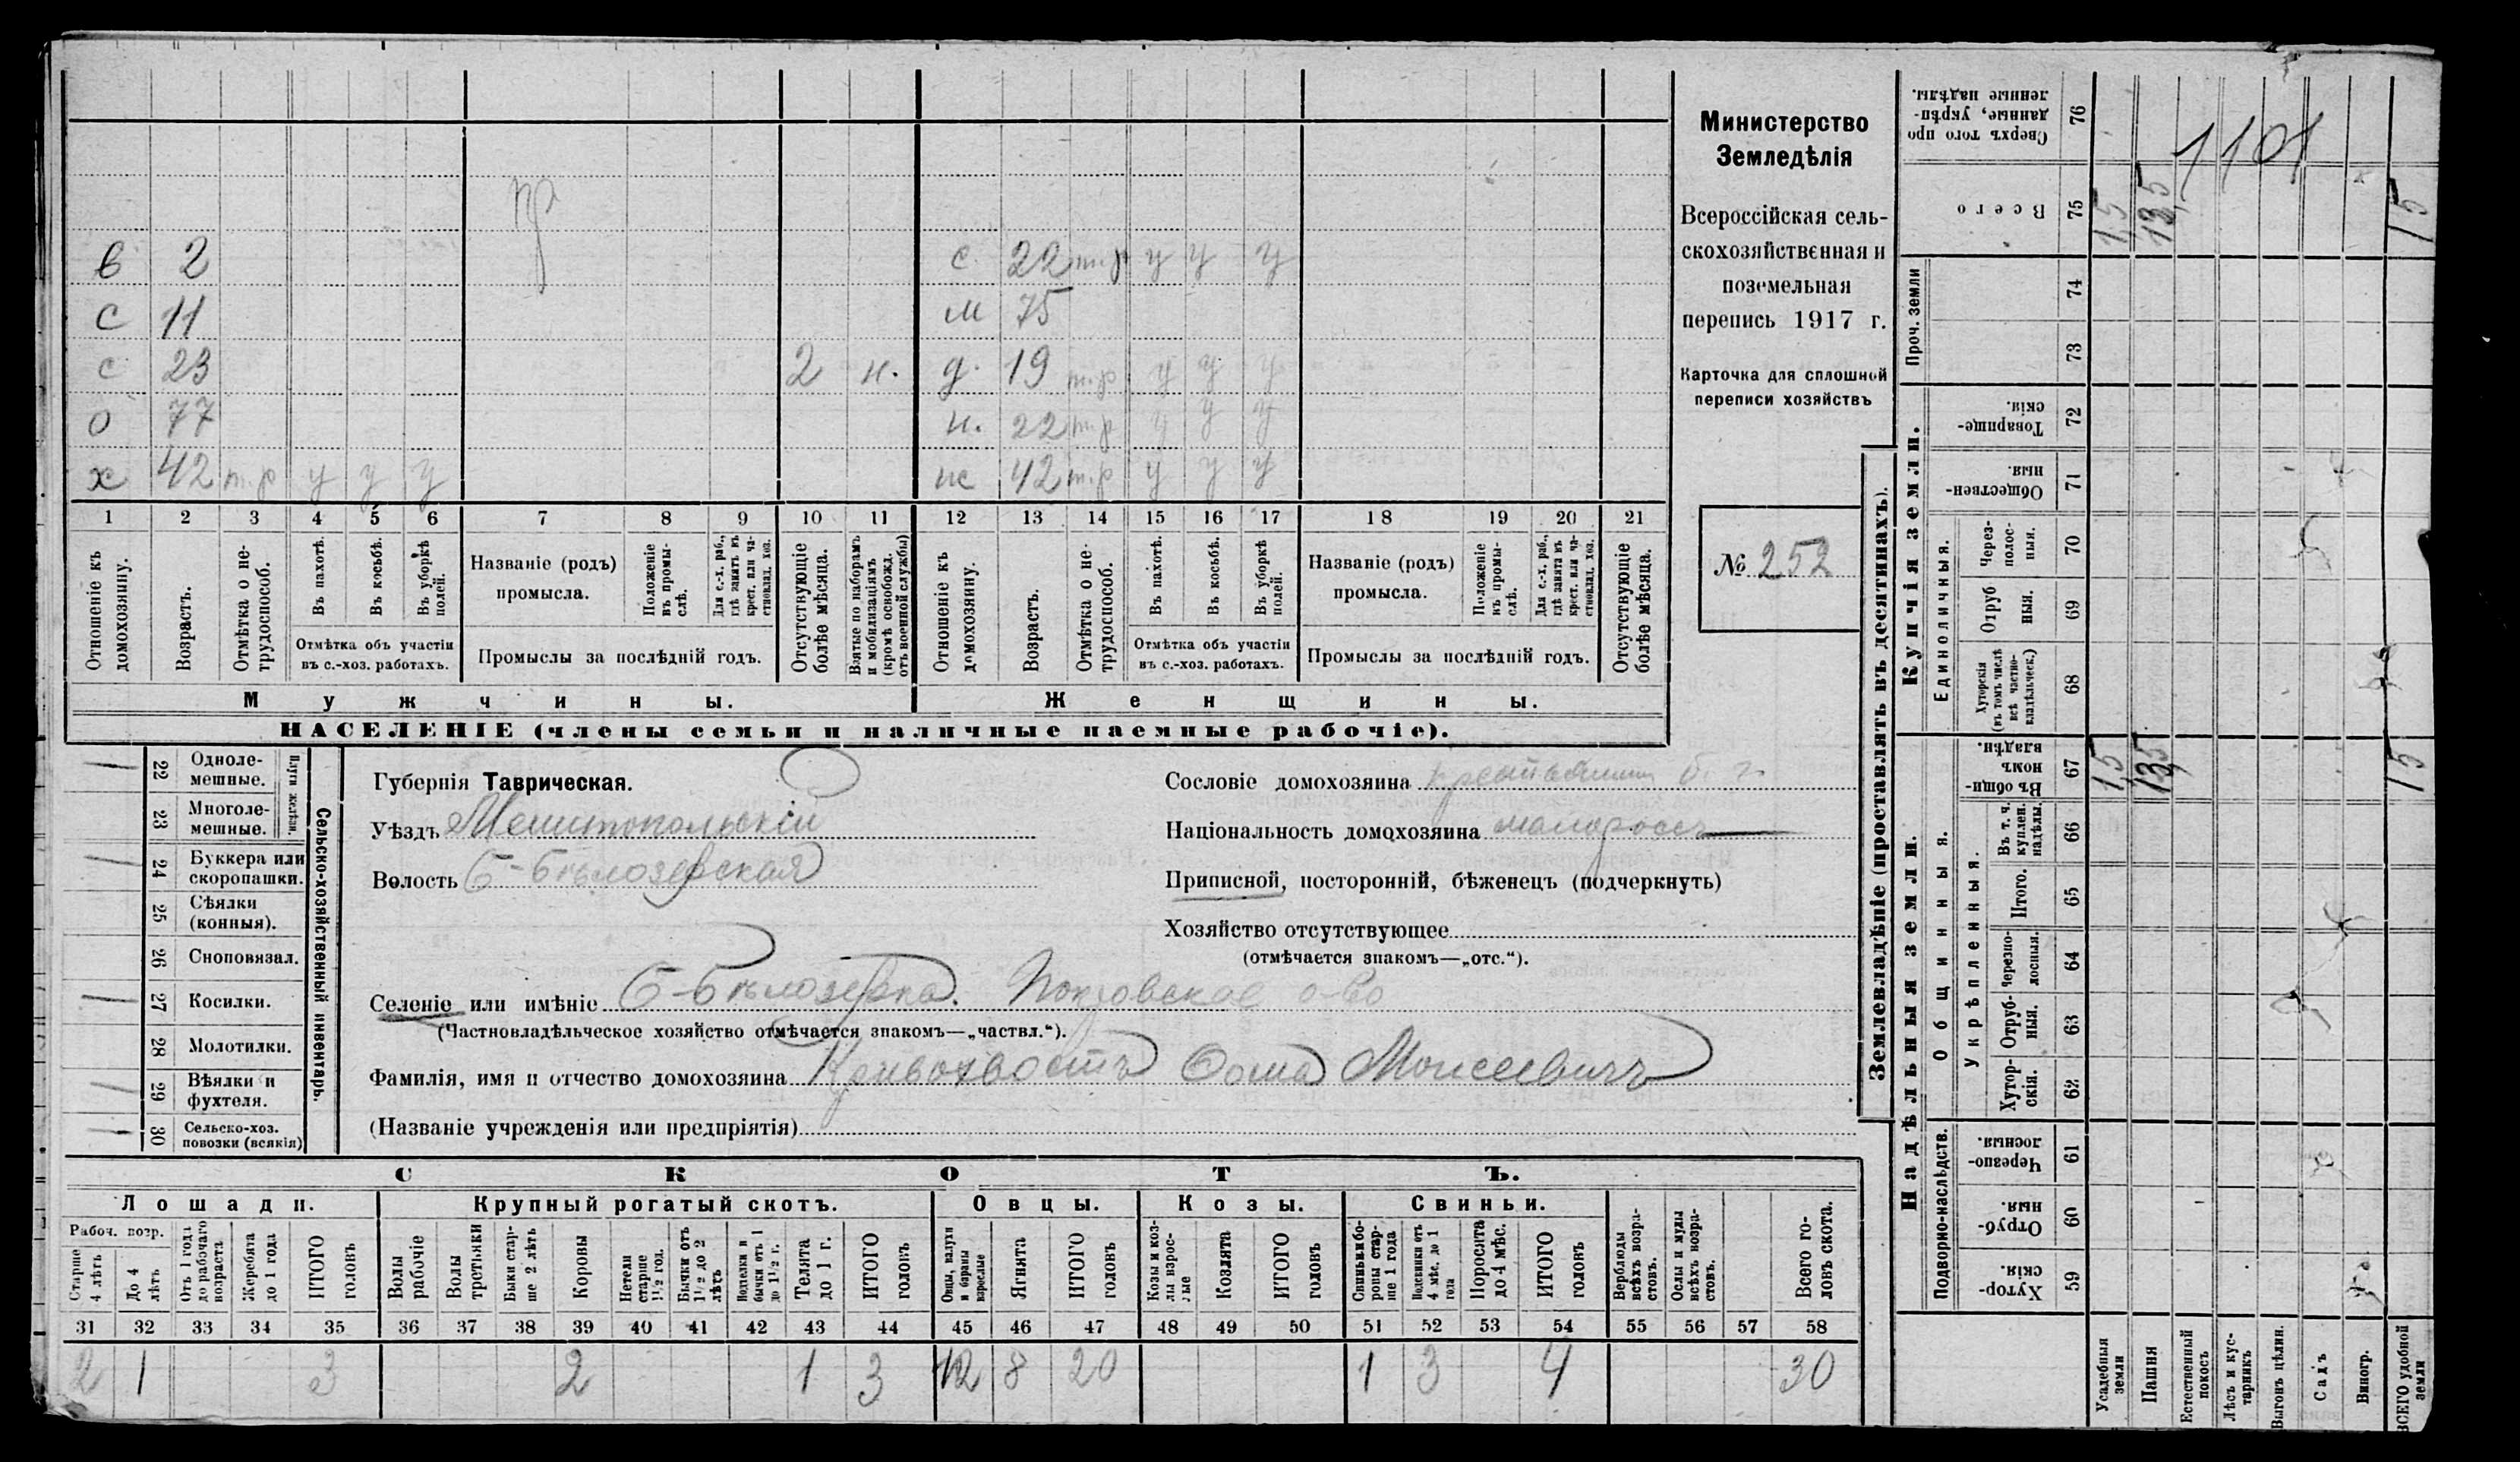 Министерство
Земледѣлія
Всероссійская сель-
скохозяйственная и
поземельная
перепись 1917 г.
Карточка для сплошной
переписи хозяйствъ
№ 252
в 2
с 22 т.р у у у
с 11
м 75
с 23 2 н.
д. 19 т.р у у у
о 77
н. 22 т.р у у у
х 42 т.р у у у
ж 42 т.р у у у
1 2 3 4 5 6 7 8 9 10 11 12 13 14 15 16 17 18 19 20 21
Отношеніе къ домохозяину.
Возрастъ.
Отмѣтка о не-трудоспособ.
Въ пахотѣ.
Въ косьбѣ.
Въ уборкѣ полей.
Отмѣтка объ участіи въ с.-хоз. работахъ.
Названіе (родъ) промысла.
Положеніе въ промы-слѣ.
Для с.-х. раб., гдѣ занятъ въ крест. или ча-стновлад. хоз.
Промыслы за послѣдній годъ.
Отсутствующіе болѣе мѣсяца.
Взятые по наборамъ и мобилизаціямъ (кромѣ освобожд. отъ военной службы)
Отношеніе къ домохозяину.
Возрастъ.
Отмѣтка о не-трудоспособ.
Въ пахотѣ.
Въ косьбѣ.
Въ уборкѣ полей.
Отмѣтка объ участіи въ с.-хоз. работахъ.
Названіе (родъ) промысла.
Положеніе въ промы-слѣ.
Для с.-х. раб., гдѣ занята въ крест. или ча-стновлад. хоз.
Промыслы за послѣдній годъ.
Отсутствующіе болѣе мѣсяца.
Мужчины.
Женщины.
НАСЕЛЕНІЕ (члены семьи и наличные наемные рабочіе).
22 Одноле-мешные.
23 Многоле-мешные.
Плуги желѣзн.
24 Буккера или скоропашки.
25 Сѣялки (конныя).
26 Сноповязал.
27 Косилки.
28 Молотилки.
29 Вѣялки и фухтеля.
30 Сельско-хоз. повозки (всякія)
Сельско-хозяйственный инвентарь.
Губернія Таврическая.
Уѣздъ Мелитопольскій
Волость Б-Бѣлозерская
Сословіе домохозяина
Національность домохозяина малороссъ
Приписной, посторонній, бѣженецъ (подчеркнуть)
Хозяйство отсутствующее
(отмѣчается знакомъ—„отс.“).
Селеніе или имѣніе Б-Бѣлозерка. Покровское о-во
(Частновладѣльческое хозяйство отмѣчается знакомъ—„частвл.“).
Фамилія, имя и отчество домохозяина Кривохвостъ Фома Моисеевичъ
(Названіе учрежденія или предпріятія)
СКОТЪ.
Лошади.
Крупный рогатый скотъ.
Овцы.
Козы.
Свиньи.
Рабоч. возр.
Старше 4 лѣтъ
До 4 лѣтъ
Отъ 1 года до рабочаго возраста
Жеребята до 1 года
ИТОГО головъ
Волы рабочіе
Волы третьяки
Быки стар-ше 2 лѣтъ
Коровы
Нетели старше 1½ год.
Бычки отъ 1½ до 2 лѣтъ
Подтелки и бычки отъ 1 до 1½ г.
Телята до 1 г.
ИТОГО головъ
Овцы, валухи и бараны взрослые
Ягнята
ИТОГО головъ
Козы и коз-лы взрос-лые
Козлята
ИТОГО головъ
Свиньи бо-ровы стар-ше 1 года
Подсвинки отъ 4 мѣс. до 1 года
Поросята до 4 мѣс.
ИТОГО головъ
Верблюды всѣхъ возра-стовъ.
Ослы и мулы всѣхъ возра-стовъ.
Всего го-ловъ скота.
31 32 33 34 35 36 37 38 39 40 41 42 43 44 45 46 47 48 49 50 51 52 53 54 55 56 57 58
2 1 3 2 1 3 12 8 20 1 3 4 30
Землевладѣніе (проставлять въ десятинахъ).
Надѣльныя земли.
Купчія земли.
Проч. земли
Подворно-наслѣдств.
Общинныя.
Укрѣпленныя.
Единоличныя.
Хутор-скія. 59
Отруб-ныя. 60
Черезпо-лосныя. 61
Хутор-скія. 62
Отруб-ныя. 63
Черезпо-лосныя. 64
Итого. 65
Въ т. ч. куплен. надѣлы. 66
Въ общи-номъ владѣн. 67
Хуторскія (въ томъ числѣ всѣ частно-владѣльческ.) 68
Отруб ныя. 69
Через-полос-ныя. 70
Обществен-ныя. 71
Товарище-скія. 72
73
74
Всего 75
Сверхъ того про данные, укрѣп-ленные надѣлы. 76
Усадебныя земли 1,5 1,5
Пашня 13,5 13,5
Естественный покосъ
Лѣсъ и кус-тарникъ
Выгонъ цѣлин.
Садъ
Виногр.
ВСЕГО удобной земли 15 15
1101